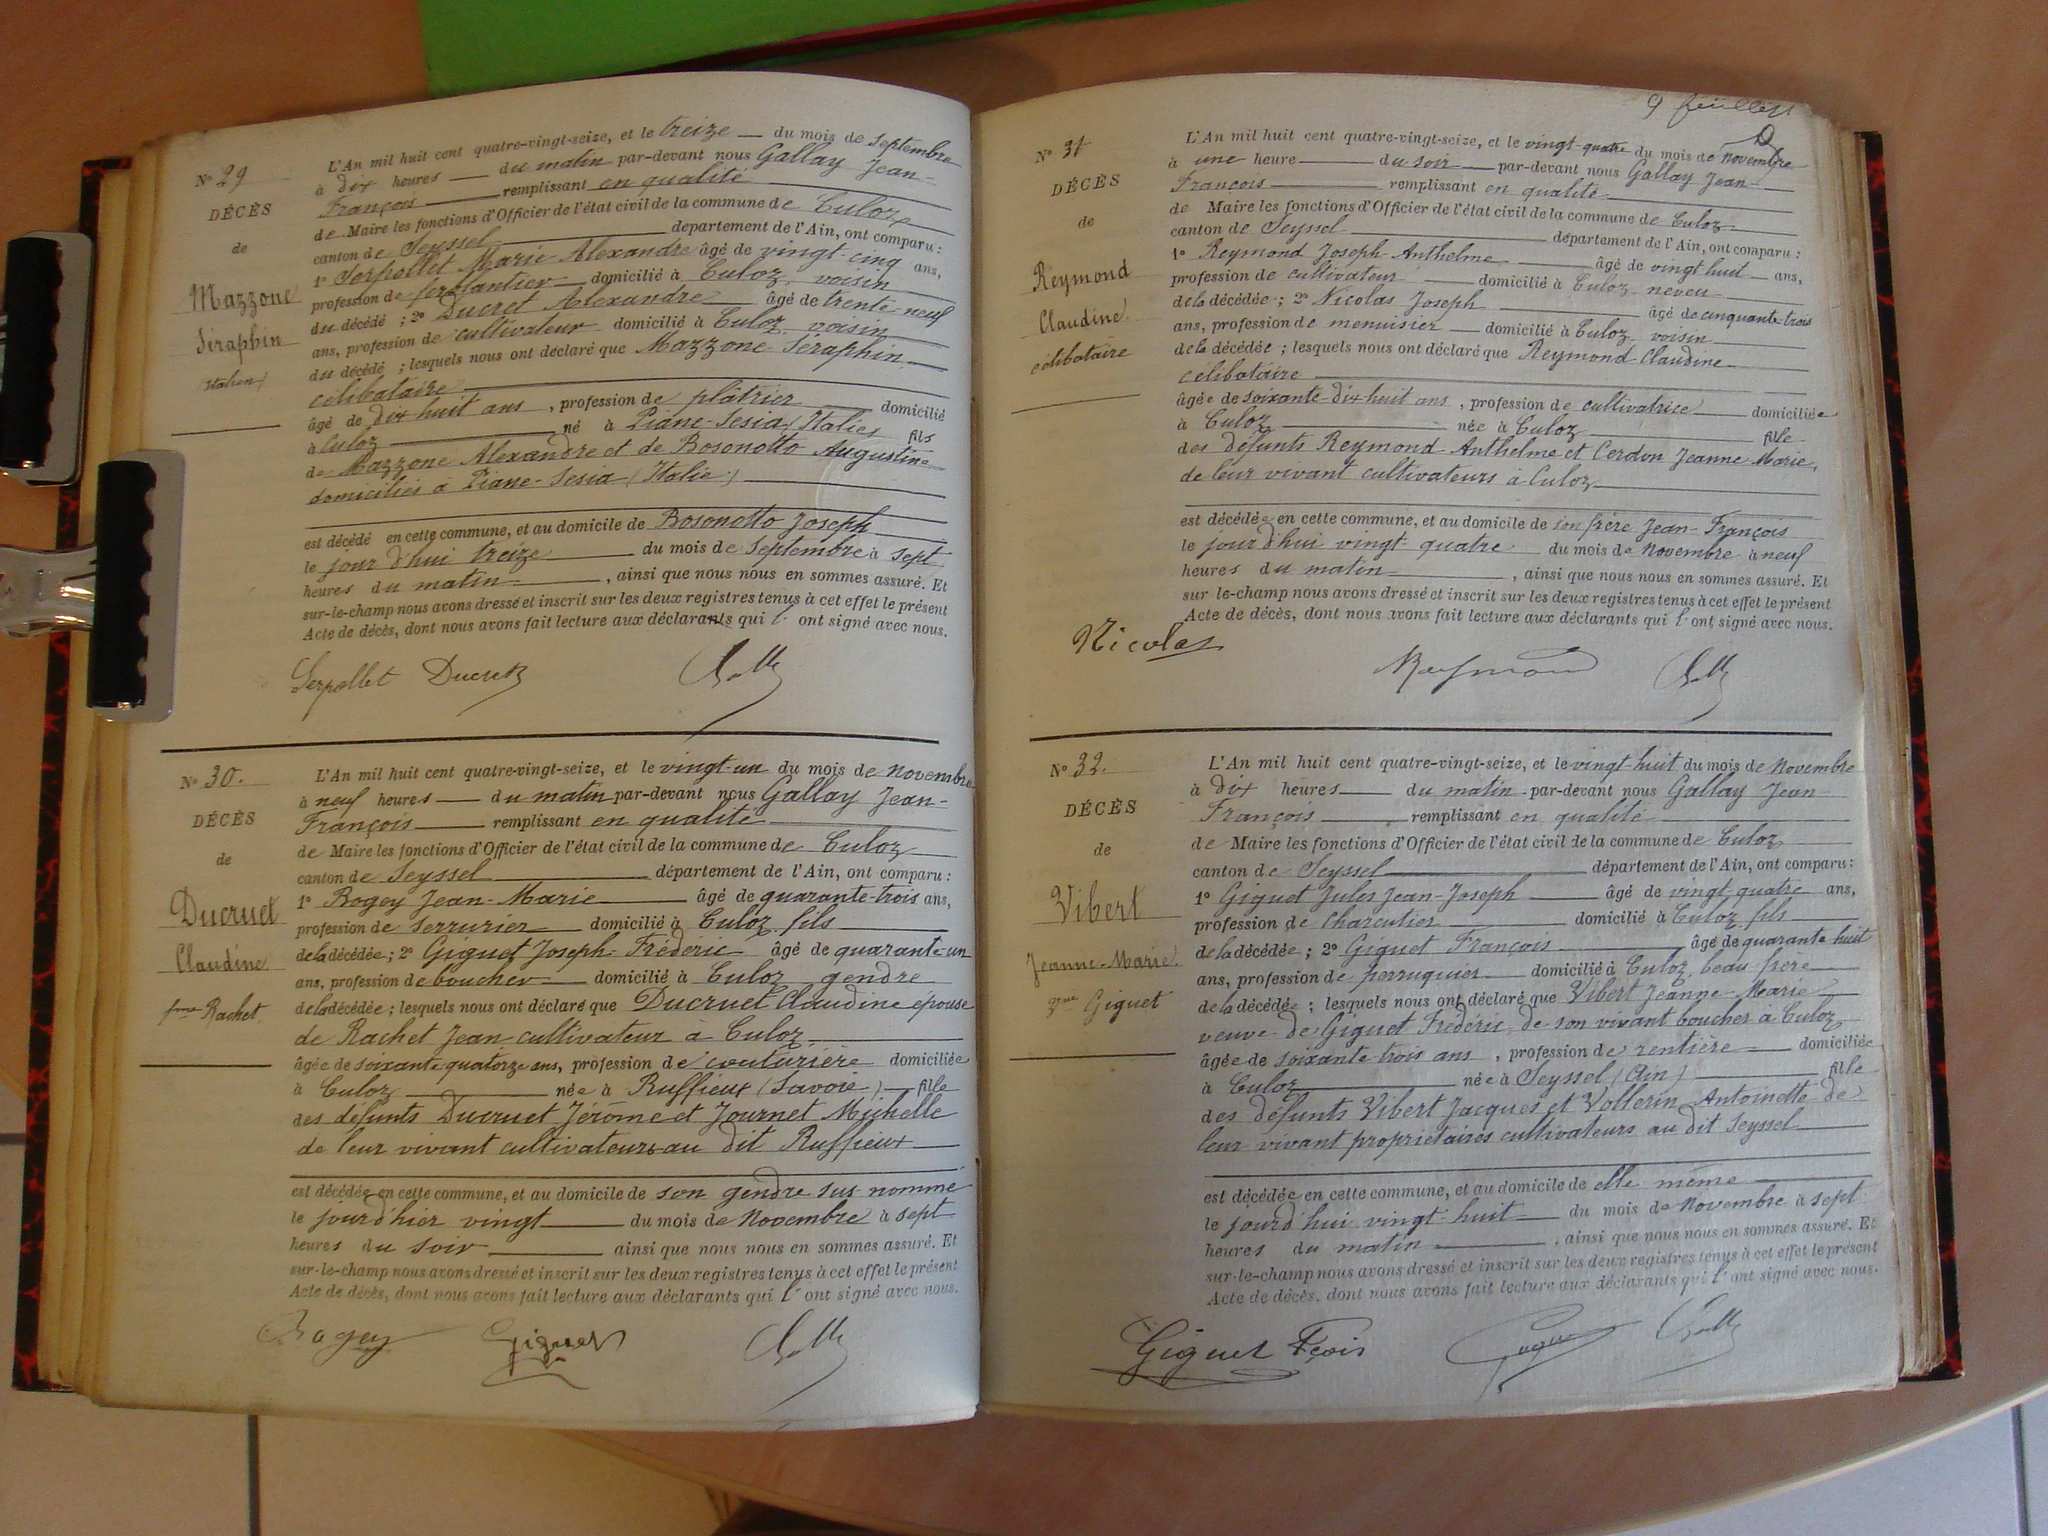 N° 29
DÉCÈS
de
Mazzone
Séraphin
Italien
L'An mil huit cent quatre-vingt-seize, et le treize du mois de septembre
à dix heures du matin par-devant nous Gallay Jean-
François remplissant en qualité
de Maire les fonctions d'Officier de l'état civil de la commune de Culoz
canton de Seyssel département de l'Ain, ont comparu :
1° Serpollet Marie Alexandre âgé de vingt-cinq ans,
profession de ferblantier domicilié à Culoz voisin
du décédé ; 2° Ducret Alexandre âgé de trente neuf
ans, profession de cultivateur domicilié à Culoz voisin
du décédé ; lesquels nous ont déclaré que Mazzone Séraphin
célibataire
âgé de dix huit ans, profession de plâtrier domicilié
à Culoz né à Piane-Sesia (Italie) fils
de Mazzone Alexandre et de Bosonotto Augustine
domiciliés à Piane-Sesia (Italie)
est décédé en cette commune, et au domicile de Bosonotto Joseph
le jour d'hui treize du mois de septembre à sept
heures du matin, ainsi que nous nous en sommes assuré. Et
sur-le-champ nous avons dressé et inscrit sur les deux registres tenus à cet effet le présent
Acte de décès, dont nous avons fait lecture aux déclarants qui l'ont signé avec nous.
Serpollet Ducret
N° 30.
DÉCÈS
de
Ducruet
Claudine
fme Rachet
L'An mil huit cent quatre-vingt-seize, et le vingt-un du mois de novembre
à neuf heures du matin par-devant nous Gallay Jean-
François remplissant en qualité
de Maire les fonctions d'Officier de l'état civil de la commune de Culoz
canton de Seyssel département de l'Ain, ont comparu :
1° Bogey Jean-Marie âgé de quarante-trois ans,
profession de serrurier domicilié à Culoz fils
de la décédée ; 2° Giguet Joseph-Fréderic âgé de quarante-un
ans, profession de boucher domicilié à Culoz gendre
de la décédée ; lesquels nous ont déclaré que Ducruet Claudine épouse
de Rachet Jean cultivateur a Culoz
âgée de soixante quatorze ans, profession de couturière domiciliée
à Culoz née à Ruffieux (Savoie) fille
des défunts Ducruet Jérôme et Journet Michelle
de leur vivant cultivateurs au dit Ruffieux
est décédée en cette commune, et au domicile de son gendre sus-nommé
le jour d'hier vingt du mois de Novembre à sept
heures du soir ainsi que nous nous en sommes assuré. Et
sur-le-champ nous avons dressé et inscrit sur les deux registres tenus à cet effet le présent
Acte de décès, dont nous avons fait lecture aux déclarants qui l'ont signé avec nous.
Bogey Giguet
9 feuillets
N° 31
DÉCÈS
de
Reymond
Claudine
célibataire
L'An mil huit cent quatre-vingt-seize, et le vingt-quatre du mois de novembre
à une heure du soir par-devant nous Gallay Jean-
François remplissant en qualité
de Maire les fonctions d'Officier de l'état civil de la commune de Culoz
canton de Seyssel département de l'Ain, ont comparu :
1° Reymond Joseph-Anthelme âgé de vingt huit ans,
profession de cultivateur domicilié à Culoz neveu
de la décédée ; 2° Nicolas Joseph âgé de cinquante-trois
ans, profession de menuisier domicilié à Culoz voisin
de la décédée ; lesquels nous ont déclaré que Reymond Claudine
célibataire
âgée de soixante-dix huit ans, profession de cultivatrice domiciliée
à Culoz née à Culoz fille
des défunts Reymond Anthelme et Cerdon Jeanne Marie,
de leur vivant cultivateurs à Culoz
est décédée en cette commune, et au domicile de son frère Jean-François
le jour d'hui vingt quatre du mois de Novembre à neuf
heures du matin, ainsi que nous nous en sommes assuré. Et
sur le-champ nous avons dressé et inscrit sur les deux registres tenus à cet effet le présent
Acte de décès, dont nous avons fait lecture aux déclarants qui l'ont signé avec nous.
Nicolas
Reymond
N° 32.
DÉCÈS
de
Vibert
Jeanne-Marie
Vve Giguet
L'An mil huit cent quatre-vingt-seize, et le vingt huit du mois de Novembre
à dix heures du matin par-devant nous Gallay Jean
François remplissant en qualité
de Maire les fonctions d'Officier de l'état civil de la commune de Culoz
canton de Seyssel département de l'Ain, ont comparu :
1° Giguet Jules Jean-Joseph âgé de vingt-quatre ans,
profession de charcutier domicilié à Culoz fils
de la décédée ; 2° Giguet François âgé de quarante huit
ans, profession de perruquier domicilié à Culoz, beau frère
de la décédée ; lesquels nous ont déclaré que Vibert Jeanne-Marie
veuve de Giguet Frédéric de son vivant boucher a Culoz
âgée de soixante trois ans, profession de rentière domiciliée
à Culoz née à Seyssel (Ain) fille
des défunts Vibert Jacques et Vollerin Antoinette de
leur vivant propriétaires cultivateurs au dit Seyssel
est décédée en cette commune, et au domicile de elle même
le jourd'hui vingt-huit du mois de Novembre à sept
heures du matin, ainsi que nous nous en sommes assuré. Et
sur-le-champ nous avons dressé et inscrit sur les deux registres tenus à cet effet le présent
Acte de décès. dont nous avons fait lecture aux déclarants qui l'ont signé avec nous.
Giguet Fçois